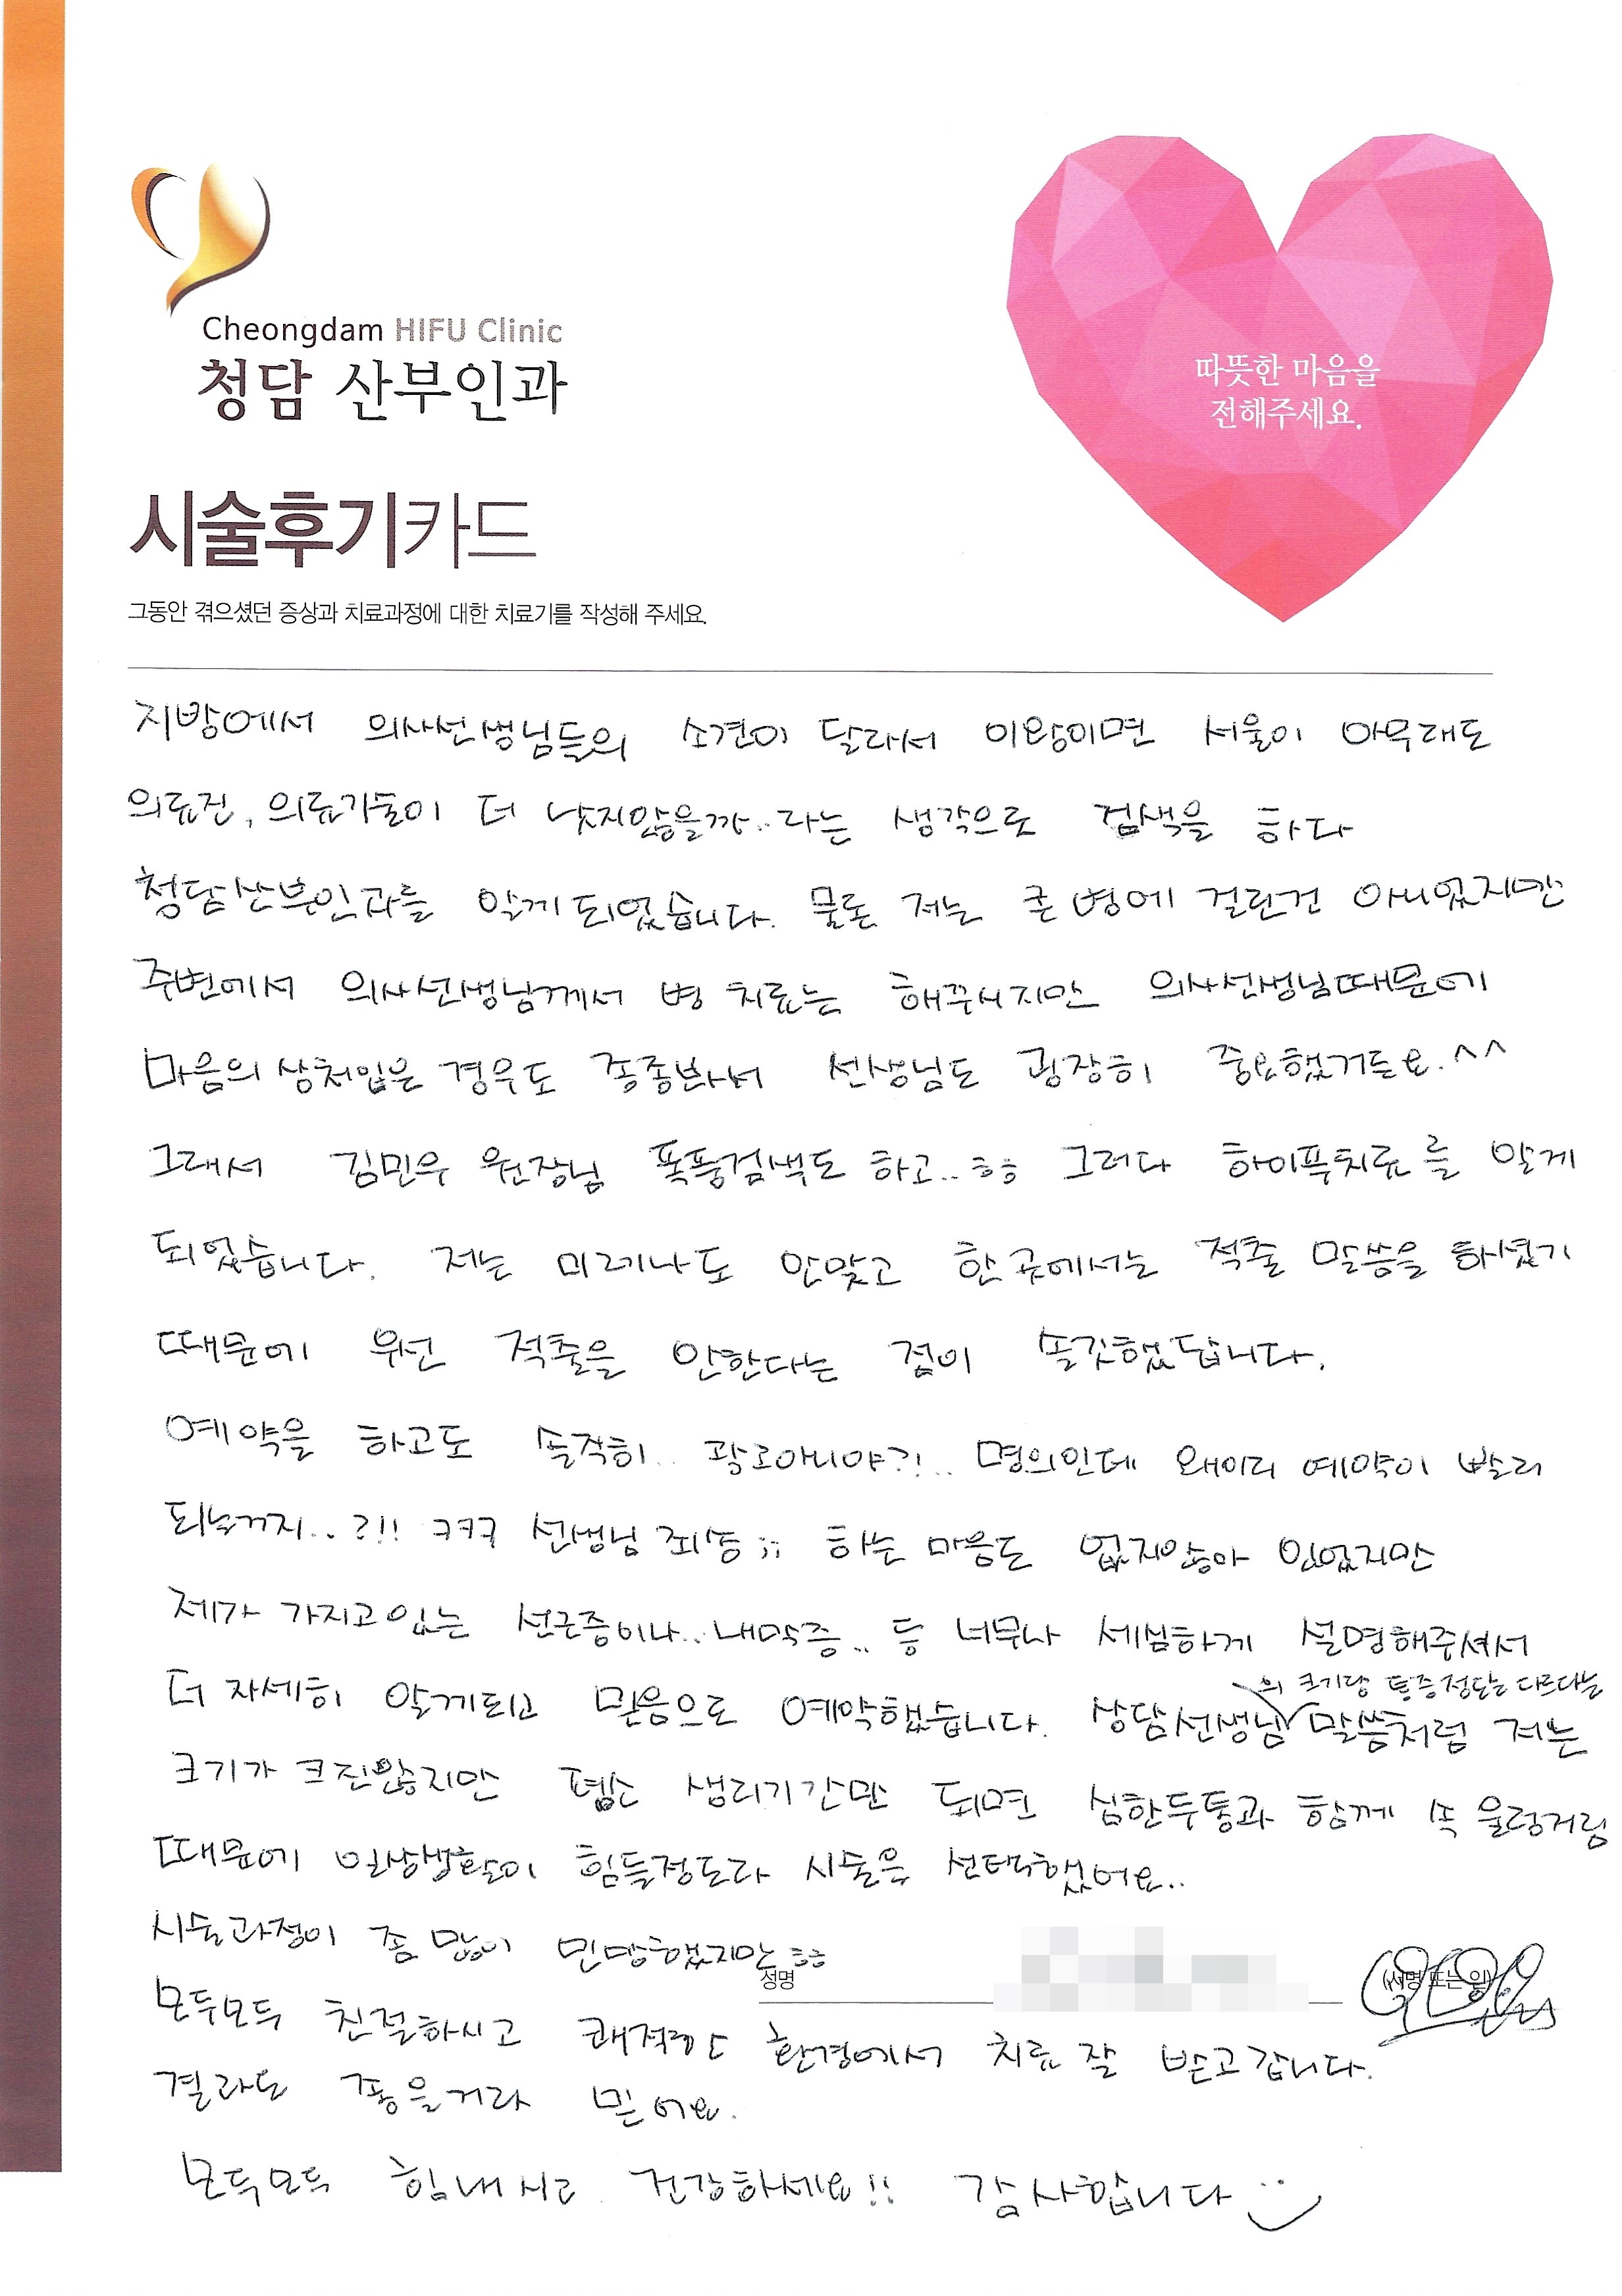 Cheongdam HIFU Clinic
청담 산부인과
따뜻한 마음을
전해주세요.
시술후기카드
그동안 겪으셨던 증상과 치료과정에 대한 치료기를 작성해 주세요.
지방에서 의사선생님들의 소견이 달라서 이왕이면 서울이 아무래도
의료진, 의료기술이 더 낫지않을까..라는 생각으로 검색을 하다
청담산부인과를 알게되었습니다. 물론 저는 큰병에 걸린건 아니었지만
주변에서 의사선생님께서 병 치료는 해주시지만 의사선생님때문에
마음의 상처입은 경우도 종종봐서 선생님도 굉장히 중요했거든요.^^
그래서 김민우 원장님 폭풍검색도 하고..ㅎㅎ 그러다 하이푸치료를 알게
되었습니다. 저는 미레나도 안맞고 한곳에서는 적출 말씀을 하셨기
때문에 우선 적출을 안한다는 점이 솔깃했답니다.
예약을 하고도 솔직히.. 광고아니야?!.. 명의인데 왜이리 예약이 빨리
되는거지..?!! ㅋㅋㅋ 선생님 죄송;; 하는 마음도 없지않아 있었지만
제가 가지고있는 선근증이나..내막증.. 등 너무나 세심하게 설명해주셔서
더 자세히 알게되고 믿음으로 예약했습니다. 상담선생님의 크기랑 통증정도는 다르다는 말씀처럼 저는
크기가 크진않지만 평소 생리기간만 되면 심한두통과 함께 속 울렁거림
때문에 일상생활이 힘들정도라 시술을 선택했어요..
시술과정이 좀 많이 민망했지만 ㅎㅎ
성명 (서명 또는 인)
모두모두 친절하시고 쾌적한 환경에서 치료 잘 받고갑니다.
결과도 좋을거라 믿어요.
모두모두 힘내시고 건강하세요!! 감사합니다